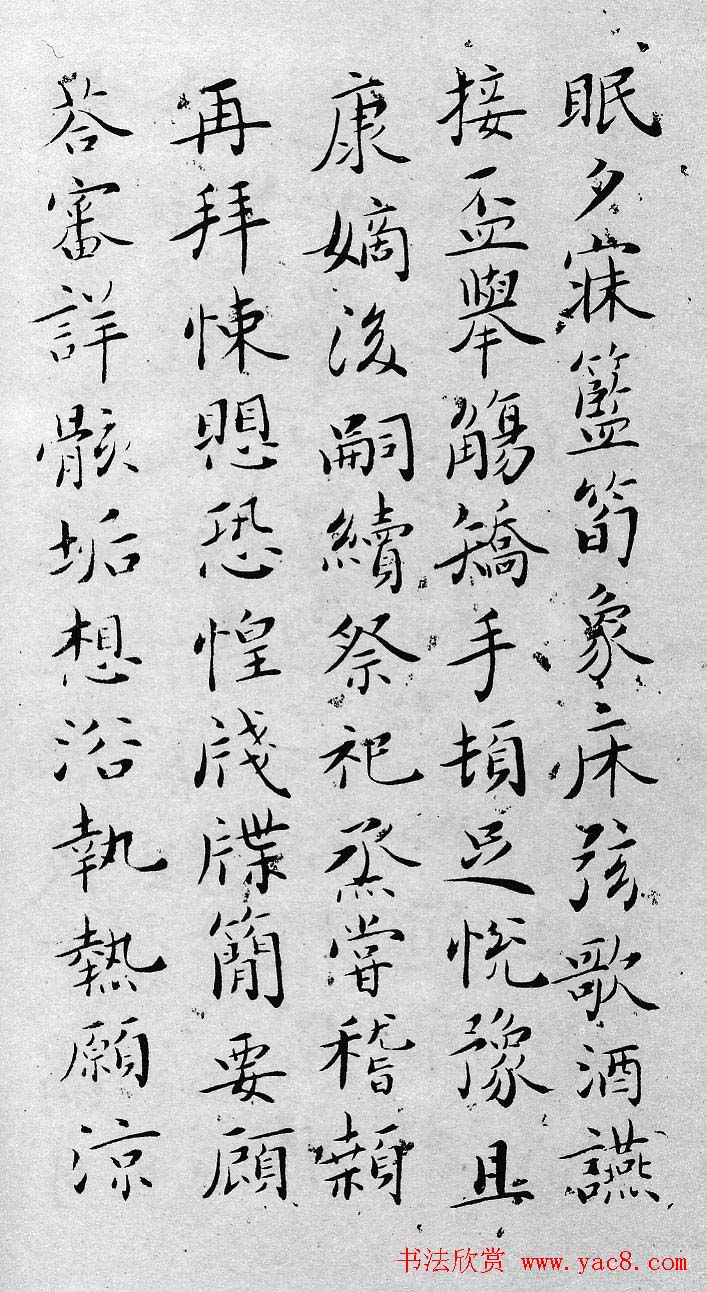 眠夕寐籃筍象床弦歌酒讌
接盃舉觴矯手頓足悅豫且
康嫡後嗣續祭祀烝嘗稽顙
再拜悚思恐惶牋牒簡要顧
荅審詳骸垢想浴執熱願涼
书法欣赏 www.yac8.com